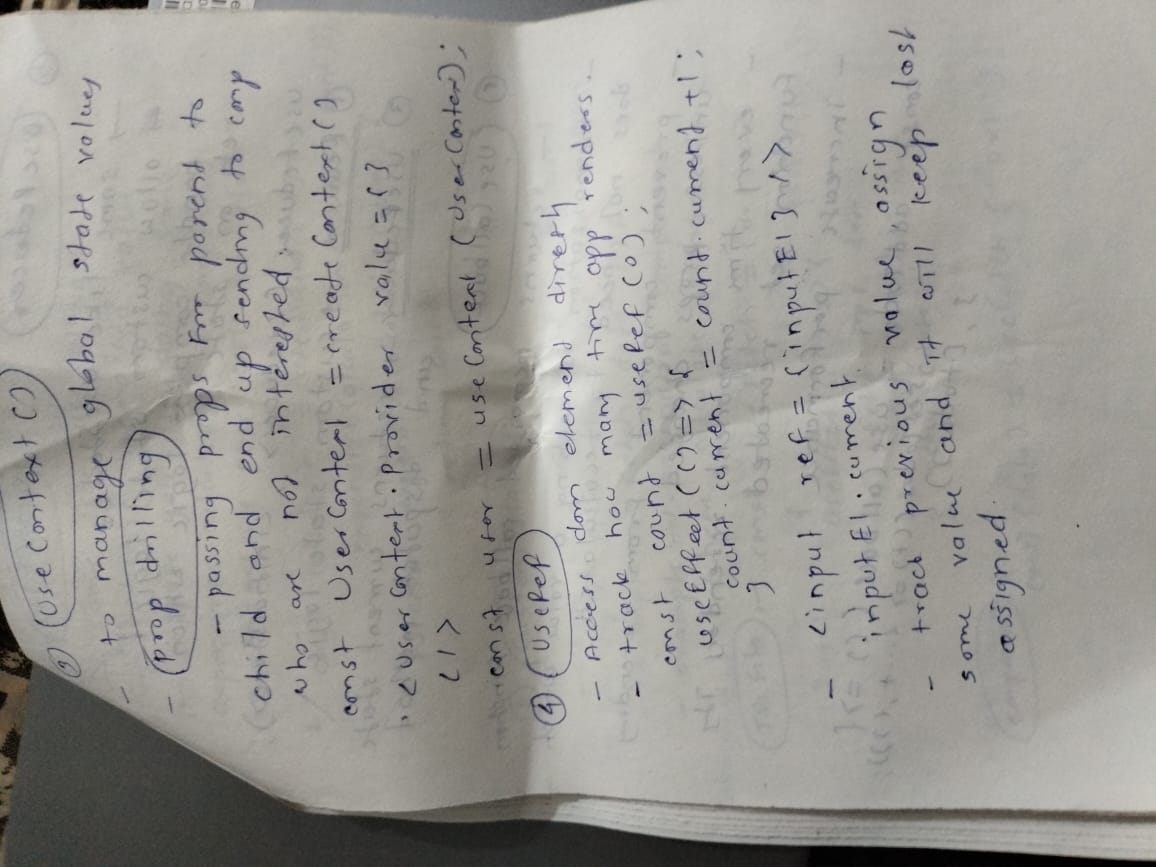 useContext()
- to manage global state values
- prop drilling
- passing props from parent to
child and end up sending to comp
who are not interested.
const UserContext = createContext()
<UserContext.Provider value={}
</>
const user = useContext(UserContext);
④ useRef
- Access dom element directly
- track how many time app renders.
const count = useRef(0);
useEffect(()=>{
count.current = count.current +1;
}
- <input ref={inputEl}/>
inputEl.current
- track previous value, assign
some value and it will keep last
assigned.